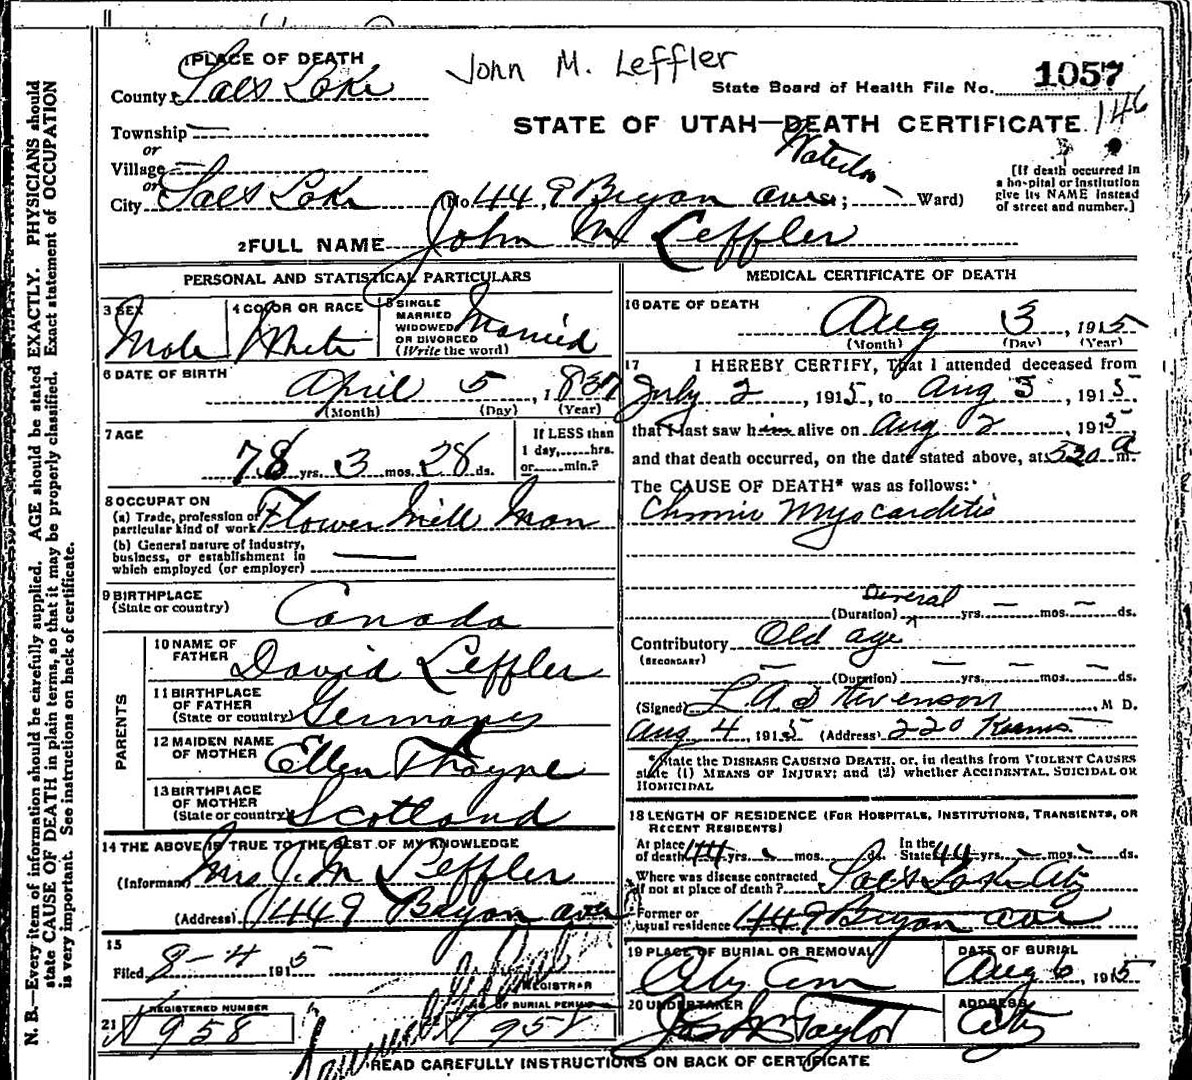 John M. Leffler
1 PLACE OF DEATH
County Salt Lake
State Board of Health File No. 1057
146
Township
or
Village
or
City Salt Lake
STATE OF UTAH—DEATH CERTIFICATE
Waterloo
(No. 449 Bryan ave; Ward)
[If death occurred in
a hospital or institution
give its NAME instead
of street and number.]
2 FULL NAME John M Leffler
PERSONAL AND STATISTICAL PARTICULARS
3 SEX Male
4 COLOR OR RACE White
5 SINGLE
MARRIED
WIDOWED
OR DIVORCED
(Write the word) Married
6 DATE OF BIRTH
April 5, 1837
(Month) (Day) (Year)
7 AGE
78 yrs. 3 mos. 28 ds.
If LESS than
1 day,......hrs.
or......min.?
8 OCCUPATION
(a) Trade, profession or
particular kind of work Flower Mill Man
(b) General nature of industry,
business, or establishment in
which employed (or employer)
9 BIRTHPLACE
(State or country) Canada
PARENTS
10 NAME OF
FATHER David Leffler
11 BIRTHPLACE
OF FATHER
(State or country) Germany
12 MAIDEN NAME
OF MOTHER Ellen Thayne
13 BIRTHPLACE
OF MOTHER
(State or country) Scotland
14 THE ABOVE IS TRUE TO THE BEST OF MY KNOWLEDGE
(Informant) Mrs J. M Leffler
(Address) 449 Bryan ave
15
Filed 8-4 1915
REGISTRAR
21 REGISTERED NUMBER 958
NO. OF BURIAL PERMIT 958
MEDICAL CERTIFICATE OF DEATH
16 DATE OF DEATH
Aug 3, 1915
(Month) (Day) (Year)
17 I HEREBY CERTIFY, That I attended deceased from
July 2, 1915, to Aug 3, 1915
that I last saw him alive on Aug 2, 1915
and that death occurred, on the date stated above, at 530 a m.
The CAUSE OF DEATH* was as follows:
Chronic Myocarditis
Several
(Duration) yrs. — mos. — ds.
Contributory Old age
(SECONDARY)
(Duration) — yrs. — mos. — ds.
(Signed) L. A. Stevenson, M D.
Aug 4, 1915 (Address) 220 Kearns
*State the DISEASE CAUSING DEATH, or, in deaths from VIOLENT CAUSES
state (1) MEANS OF INJURY; and (2) whether ACCIDENTAL, SUICIDAL OR
HOMICIDAL
18 LENGTH OF RESIDENCE (FOR HOSPITALS, INSTITUTIONS, TRANSIENTS, OR
RECENT RESIDENTS)
At place
of death 44 yrs. - mos. ds. In the
State 44 yrs. - mos. - ds.
Where was disease contracted
if not at place of death? Salt Lake City
Former or
usual residence 449 Bryan ave
19 PLACE OF BURIAL OR REMOVAL
City Cem
DATE OF BURIAL
Aug 6, 1915
20 UNDERTAKER
Jos Wm Taylor
ADDRESS
City
READ CAREFULLY INSTRUCTIONS ON BACK OF CERTIFICATE
N. B.—Every item of information should be carefully supplied. AGE should be stated EXACTLY. PHYSICIANS should
state CAUSE OF DEATH in plain terms, so that it may be properly classified. Exact statement of OCCUPATION
is very important. See instructions on back of certificate.